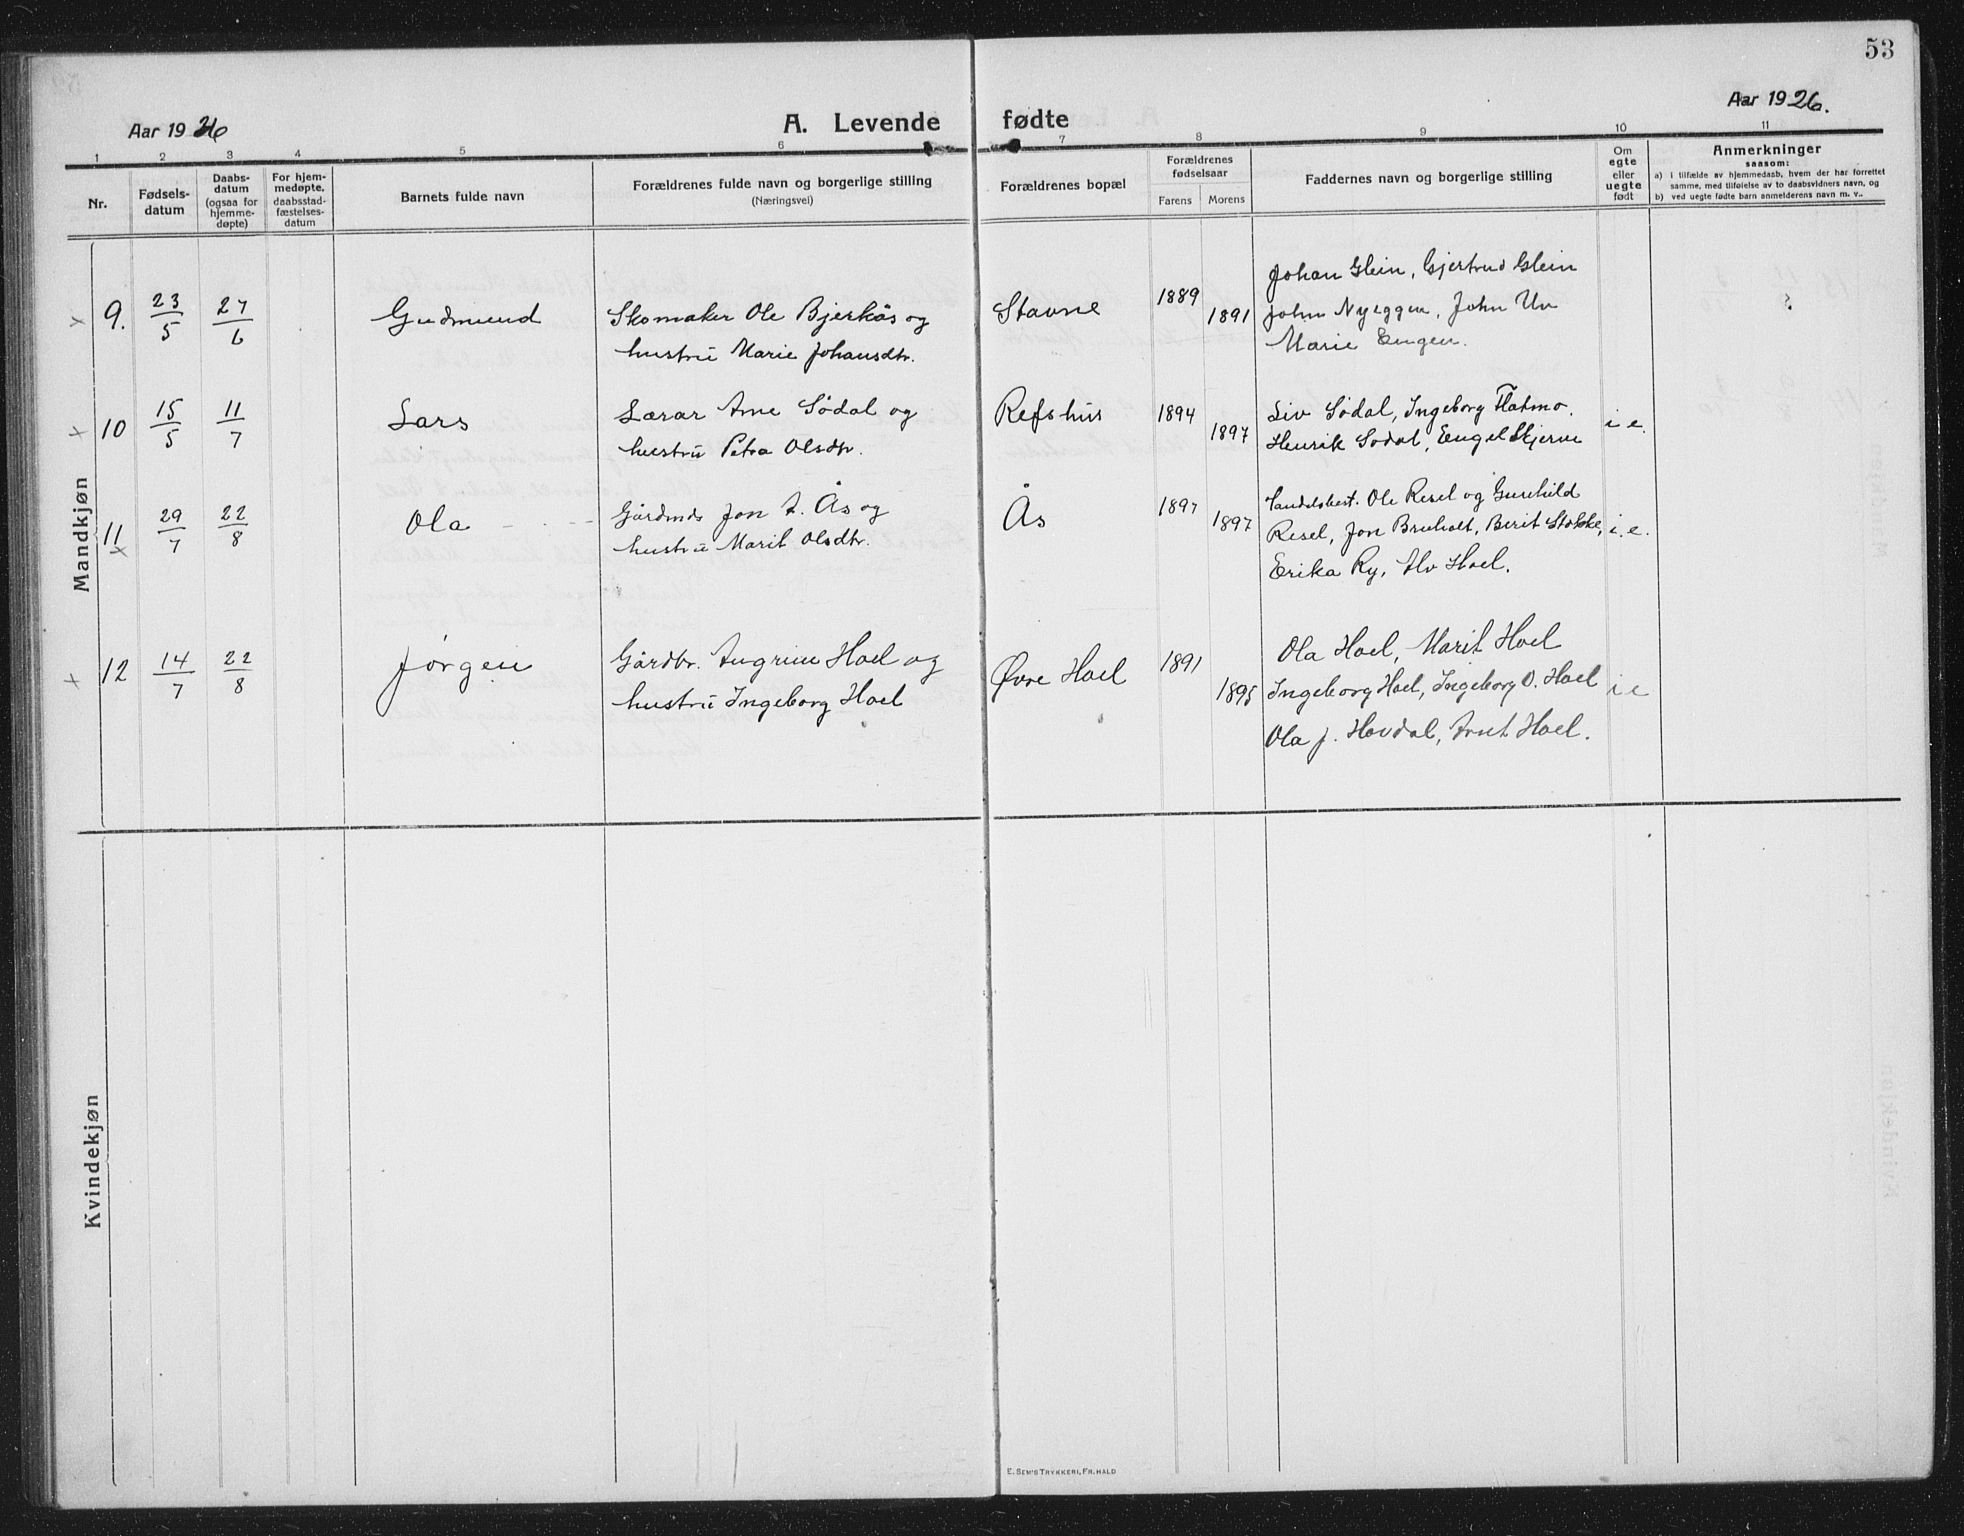 53
Aar 1926
A. Levende fødte
Aar 1926.
1 2 3 4 5 6 7 8 9 10 11
Nr.
Fødsels-
datum
Daabs-
datum
(ogsaa for
hjemme-
døpte)
For hjem-
medøpte,
daabsstad-
fæstelses-
datum
Barnets fulde navn
Forældrenes fulde navn og borgerlige stilling
(Næringsvei)
Forældrenes bopæl
Forældrenes
fødselsaar
Farens Morens
Faddernes navn og borgerlige stilling
Om
egte
eller
uegte
født
Anmerkninger
saasom:
a) i tilfælde av hjemmedaab, hvem der har forrettet
samme, med tilføielse av to daabsvidners navn, og
b) ved uegte fødte barn anmelderens navn m. v..
Mandkjøn
x 9. 23/5 27/6 Gudmund
Skomaker Ole Bjerkås og
hustru Marie Johansdtr.
Stavne 1889 1891
Johan Glein, Gjertrud Glein
John Nyeggen, John Uv
Marie Engen.
x 10 15/5 11/7 Lars
Lærar Arne Södal og
hustru Petra Olsdtr.
Refshus 1894 1897
Liv Södal, Ingeborg Flatmo.
Henrik Sodal, Engel Skjerve
i e.
11 x 29/7 22/8 Ola
Gårdmd Jon A. Ås og
hustru Marit Olsdtr.
Ås 1897 1897
Handelsbest. Ole Resel og Gunhild
Resel, Jon Bruholt, Berit Stokke,
Erika Ry, Alv Hoel.
i. e.
x 12 14/7 22/8 Jörgen
Gårdbr. Angrim Hoel og
hustru Ingeborg Hoel
Øvre Hoel 1891 1895
Ola Hoel, Marit Hoel
Ingeborg Hoel, Ingeborg O. Hoel
Ola J. Hovdal, Arnt Hoel.
i e
Kvindekjøn
E. Sem's Trykkeri, Fr.hald